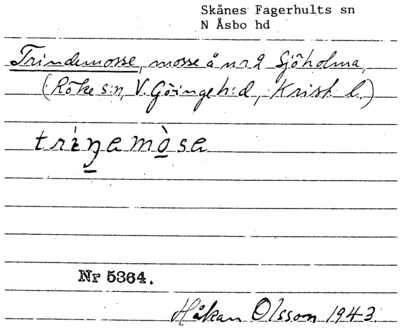 Skånes Fagerhults sn
N Åsbo hd
Trindemosse, mosse å nr 2 Sjöholma,
(Röke s:n, V. Göinge h:d, Krist. l.)
Nr 5364.
Håkan Olsson 1943